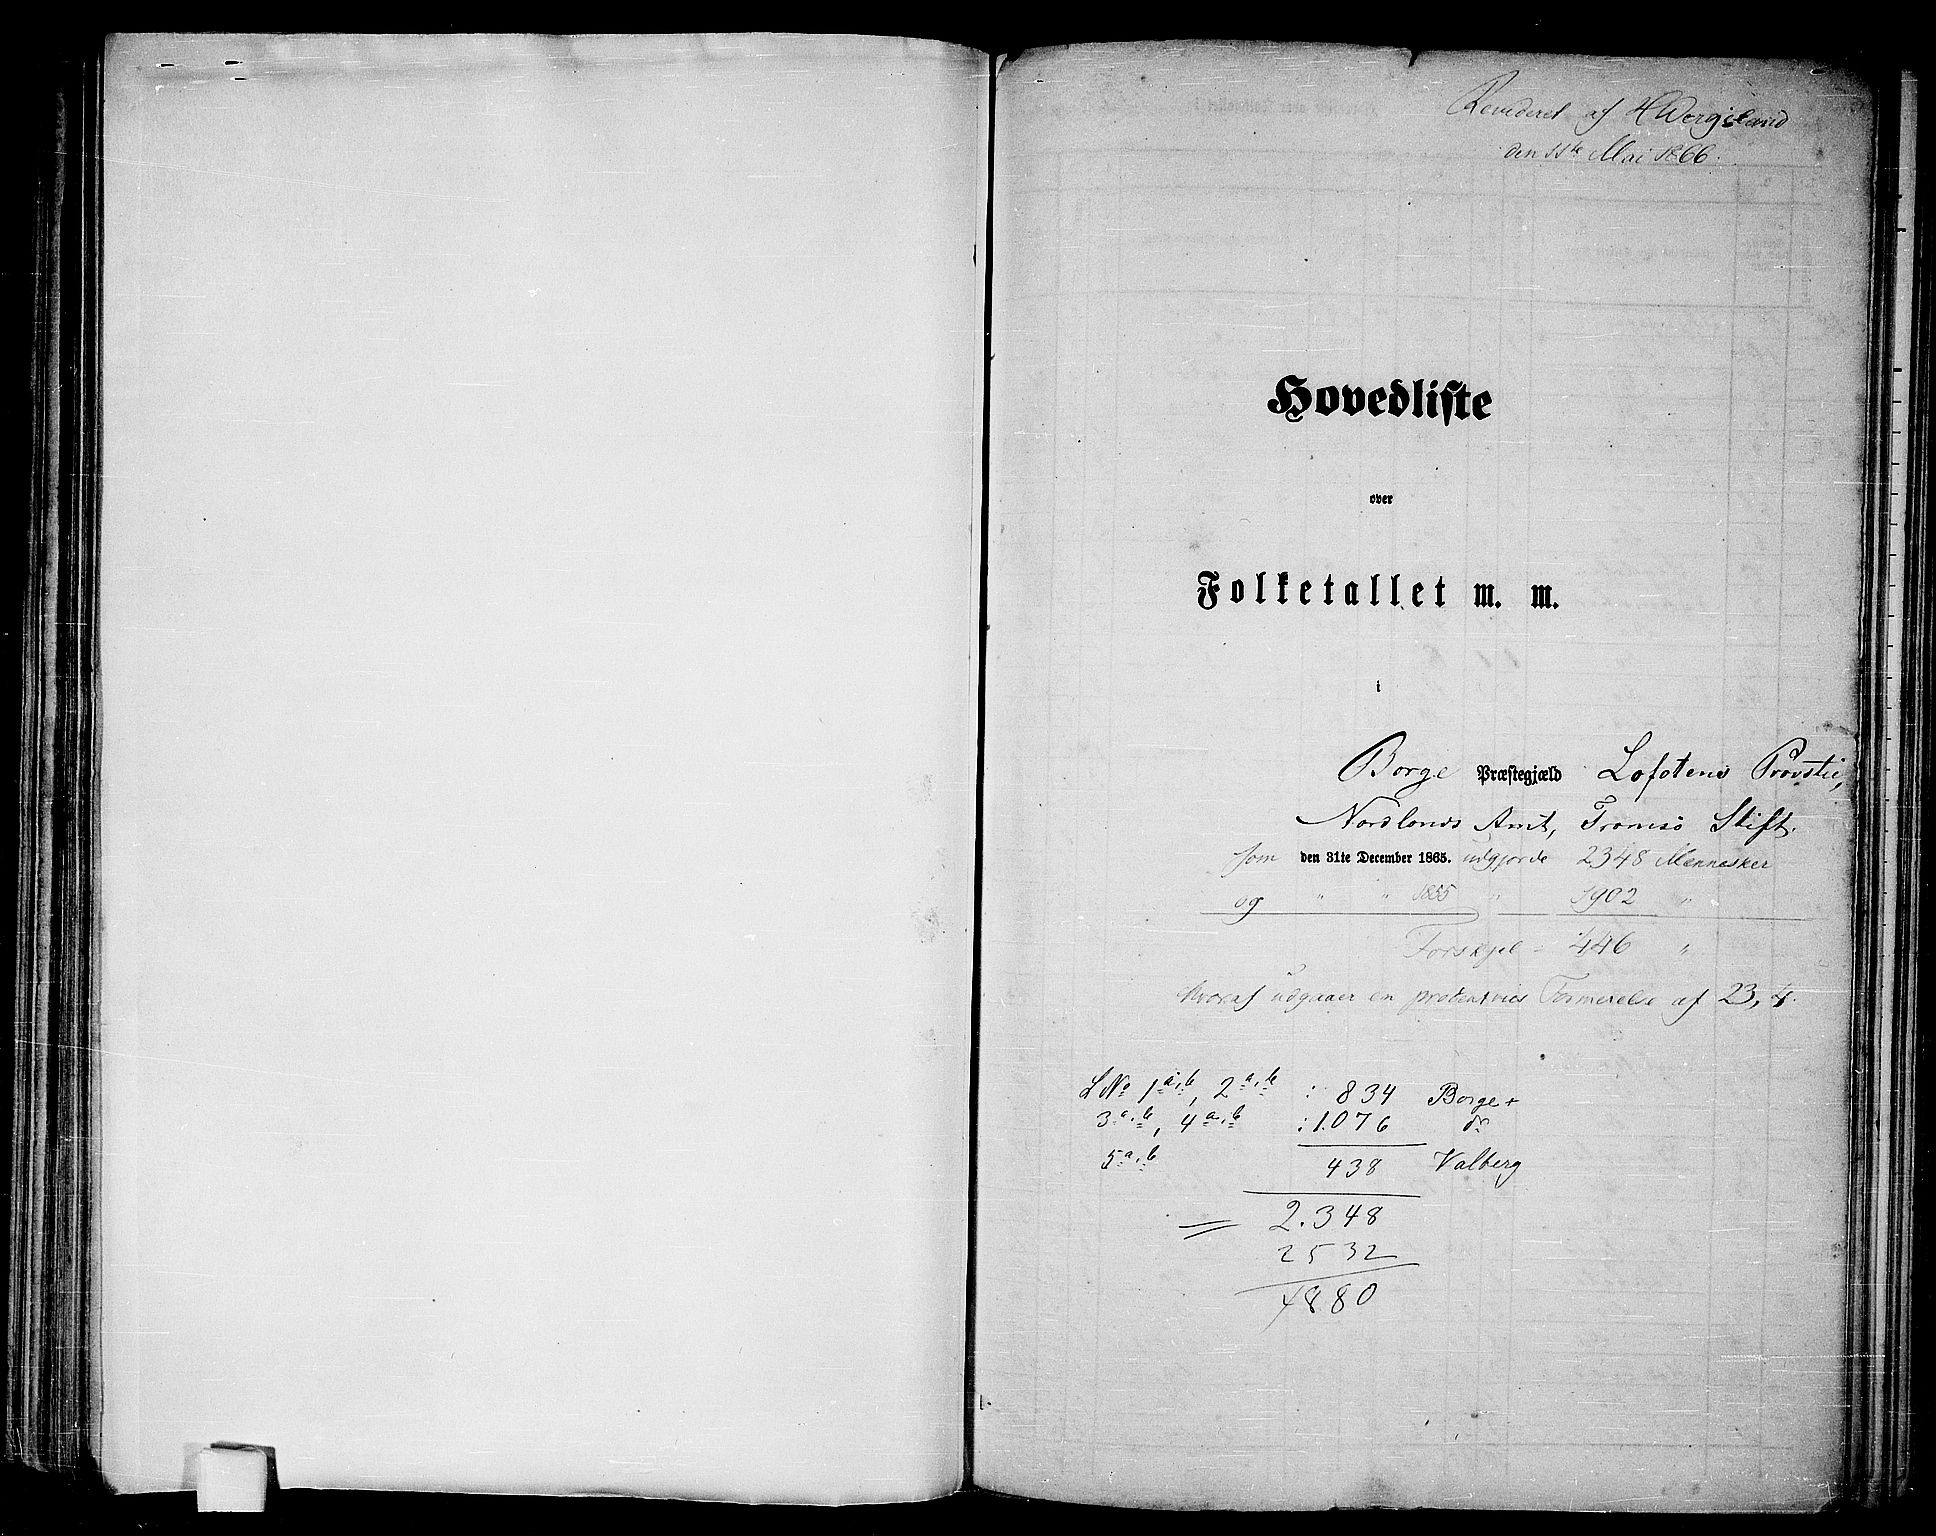 Revideret af H Wergeland
den 11te Mai 1866.
Hovedliste
over
Folketallet m. m.
i
Borge Præstegjæld Lofotens Provstie,
Nordlands Amt, Tromsö Stift.
som den 31te December 1865. udgjorde 2348 Mennesker
og " " 1855 " 1902 "
Forskjel = 446 "
hvoraf udgaaer en procentvies Formerelse af 23,4.
L No 1 a, b, 2 a, b : 834 Borge +
3 a, b, 4 a, b : 1.076 do
5 a, b 438 Valberg
= 2.348
2532
4880